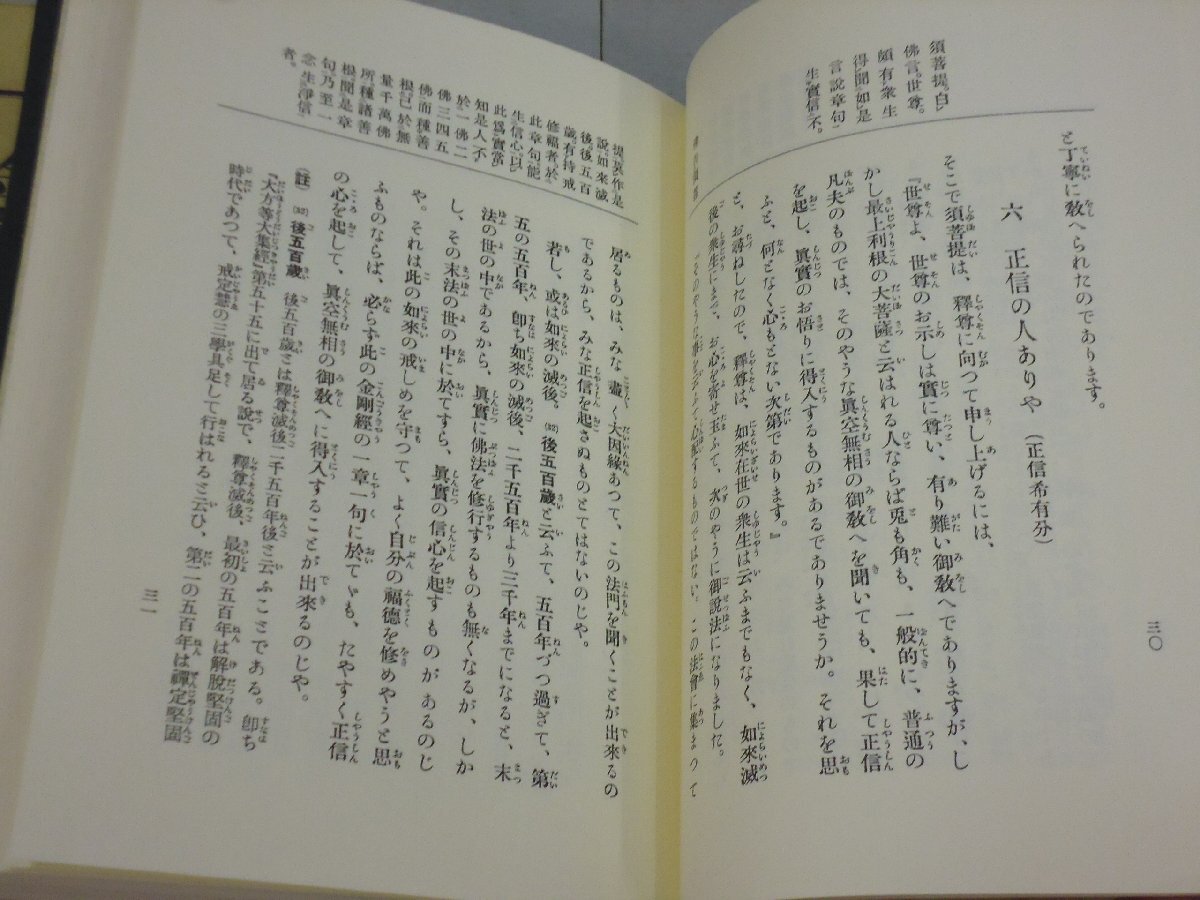 須菩提。白
佛言。世尊。
頗有衆生
得聞如是
言說章句
生實信不。
と丁寧に敎へられたのであります。
六 正信の人ありや（正信希有分）
そこで須菩提は、釋尊に向つて申し上げるには、
『世尊よ、世尊のお示しは實に尊い、有り難い御敎へでありますが、し
かし最上利根の大菩薩と云はれる人ならば兎も角も、一般的に、普通の
凡夫のものでは、そのやうな眞空無相の御敎へを聞いても、果して正信
を起し、眞實のお悟りに得入するものがあるでありませうか。それを思
ふと、何となく心もとない次第であります。』
と、お尋ねしたので、釋尊は、如來在世の衆生は云ふまでもなく、如來滅
後の衆生にまで、お心を寄せ玉ふて、次のやうに御說法になりました。
『そのやうに事を云ふて心配するものではない。この法會に集まつて
三〇
提。莫作是
說。如來滅
後。後五百
歲。有持戒
修福者。於
此章句。能
生信心。以
此爲實。當
知是人。不
於一佛二
佛三四五
佛而種善
根。已於無
量千萬佛
所。種諸善
根。聞是章
句。乃至一
念生淨信
者。
居るものは、みな盡く大因緣あつて、この法門を聞くことが出來るの
であるから、みな正信を起さぬものとてはないのじや。
若し、或は如來の滅後。(32)後五百歲と云ふて、五百年づつ過ぎて、第
五の五百年、卽ち如來の滅後、二千五百年より三千年までになると、末
法の世の中であるから、眞實に佛法を修行するものも無くなるが、しか
し、その末法の世の中に於てすら、眞實の信心を起すものがあるのじ
や。それは此の如來の戒しめを守つて、よく自分の福德を修めやうと思
ふものならば、必らず此の金剛經の一章一句に於ても、たやすく正信
の心を起して、眞空無相の御敎へに得入することが出來るのじや。
(註) (32)後五百歲 後五百歲とは釋尊滅後二千五百年後と云ふことである。卽ち
『大方等大集經』第五十五に出て居る說で、釋尊滅後、最初の五百年は解脫堅固の
時代であつて、戒定慧の三學具足して行はれると云ひ、第二の五百年は禪定堅固
三一